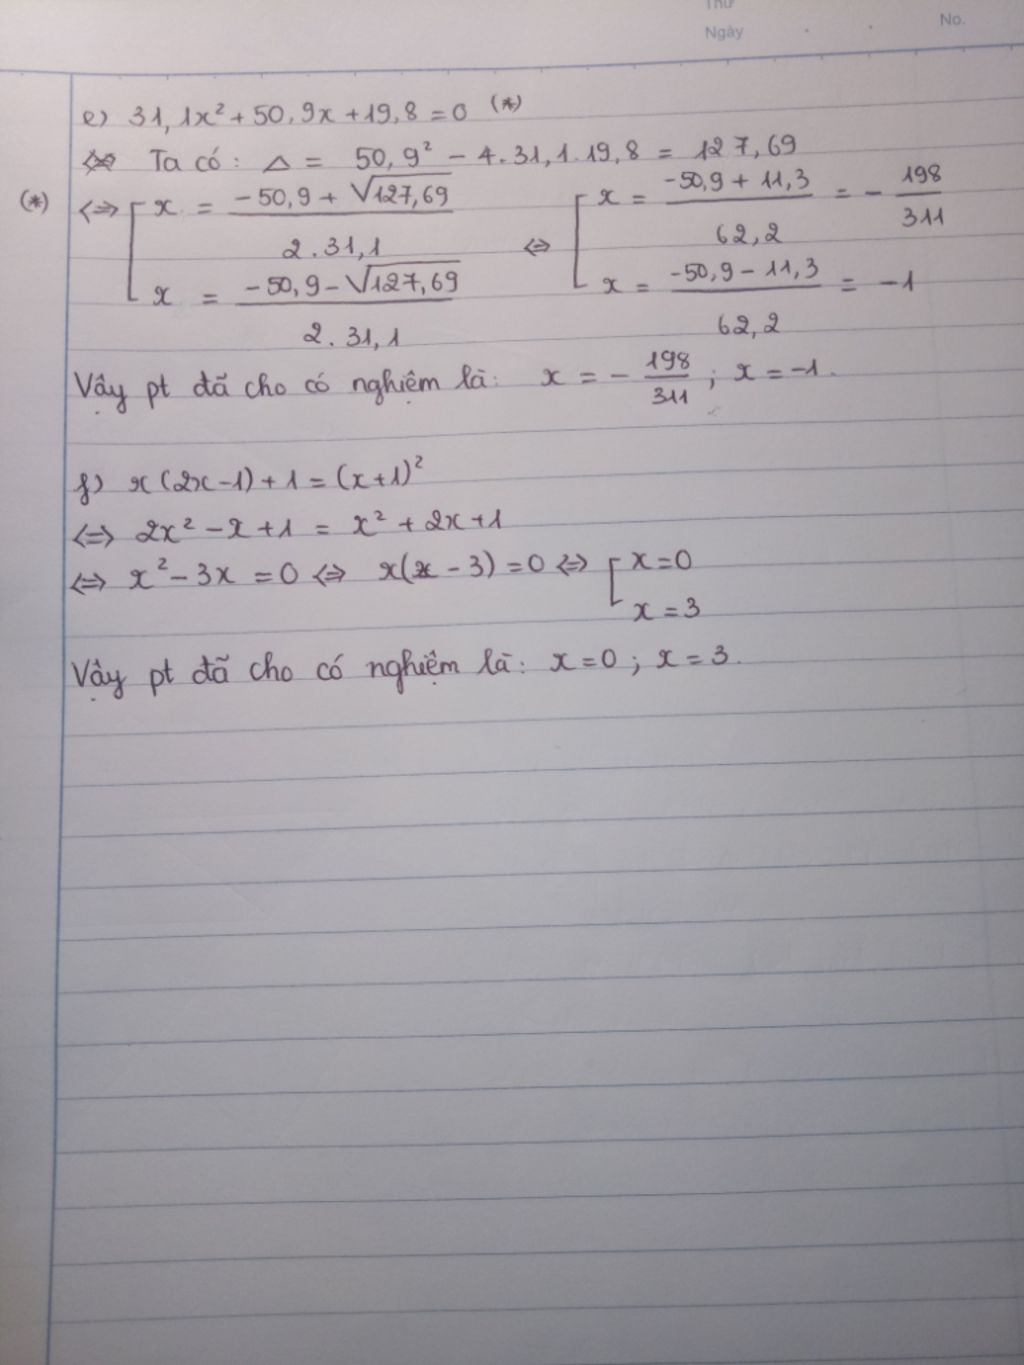 Thứ
Ngày
No.
e) 31,1x² + 50,9x + 19,8 = 0 (*)
Ta có: Δ = 50,9² - 4.31,1.19,8 = 127,69
(*) ⇔ [ x = (-50,9 + √127,69) / 2.31,1 ⇔ [ x = (-50,9 + 11,3) / 62,2 = - 198/311
x = (-50,9 - √127,69) / 2.31,1 x = (-50,9 - 11,3) / 62,2 = -1
Vậy pt đã cho có nghiệm là: x = - 198/311 ; x = -1.
f) x(2x-1)+1 = (x+1)²
⇔ 2x² - x + 1 = x² + 2x + 1
⇔ x² - 3x = 0 ⇔ x(x - 3) = 0 ⇔ [ x = 0
x = 3
Vậy pt đã cho có nghiệm là: x = 0 ; x = 3.